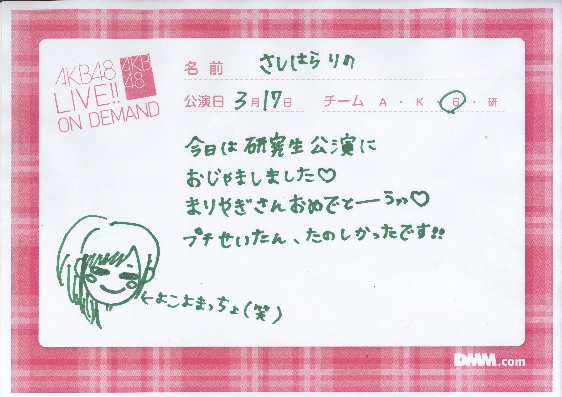 AKB48
LIVE!!
ON DEMAND
AKB
48
名前 さしはらりの
公演日 3月17日 チーム A・K・B・研
今日は研究生公演に
おじゃましました♡
まりやぎさんおめでとーうっ♡
プチせいたん、たのしかったです!!
←よこよまっちょ(笑)
DMM.com